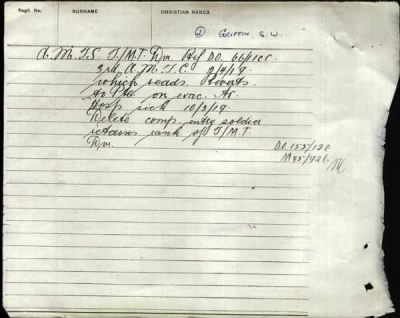 Regtl. No. SURNAME CHRISTIAN NAMES
② GRIFFIN, S.W.
A.M.T.S. T/M.T. Dvr Ref D.O. 66/1CC.
3rd A.M.T.C. 2/4/19.
which reads Reverts
to Pte on evac. to
Hosp sick 10/3/19.
Delete comp. entry soldier
retains rank of T/M.T.
Dvr.
D.O. 153/12C
M95/92C